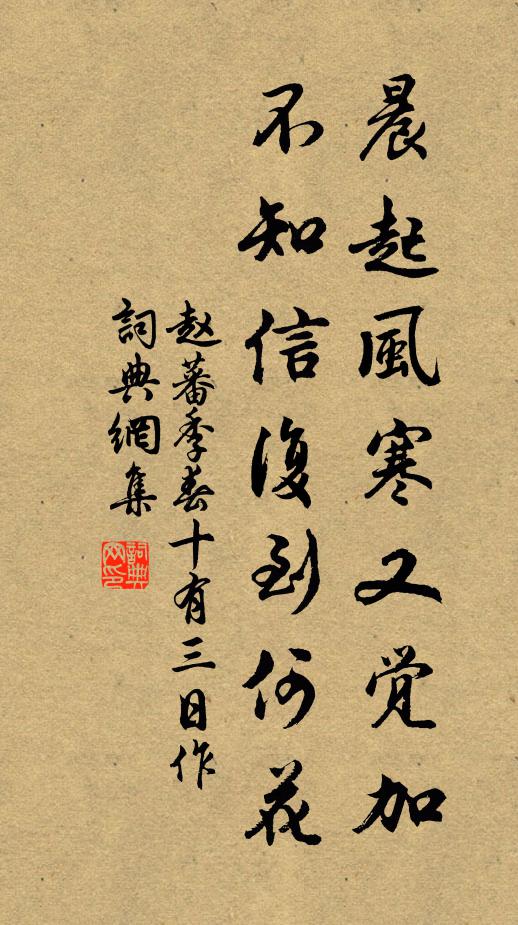 晨起風寒又覚加
不知信復到何花
赵蕃季春十有三日作
詞典網集
詞典网印